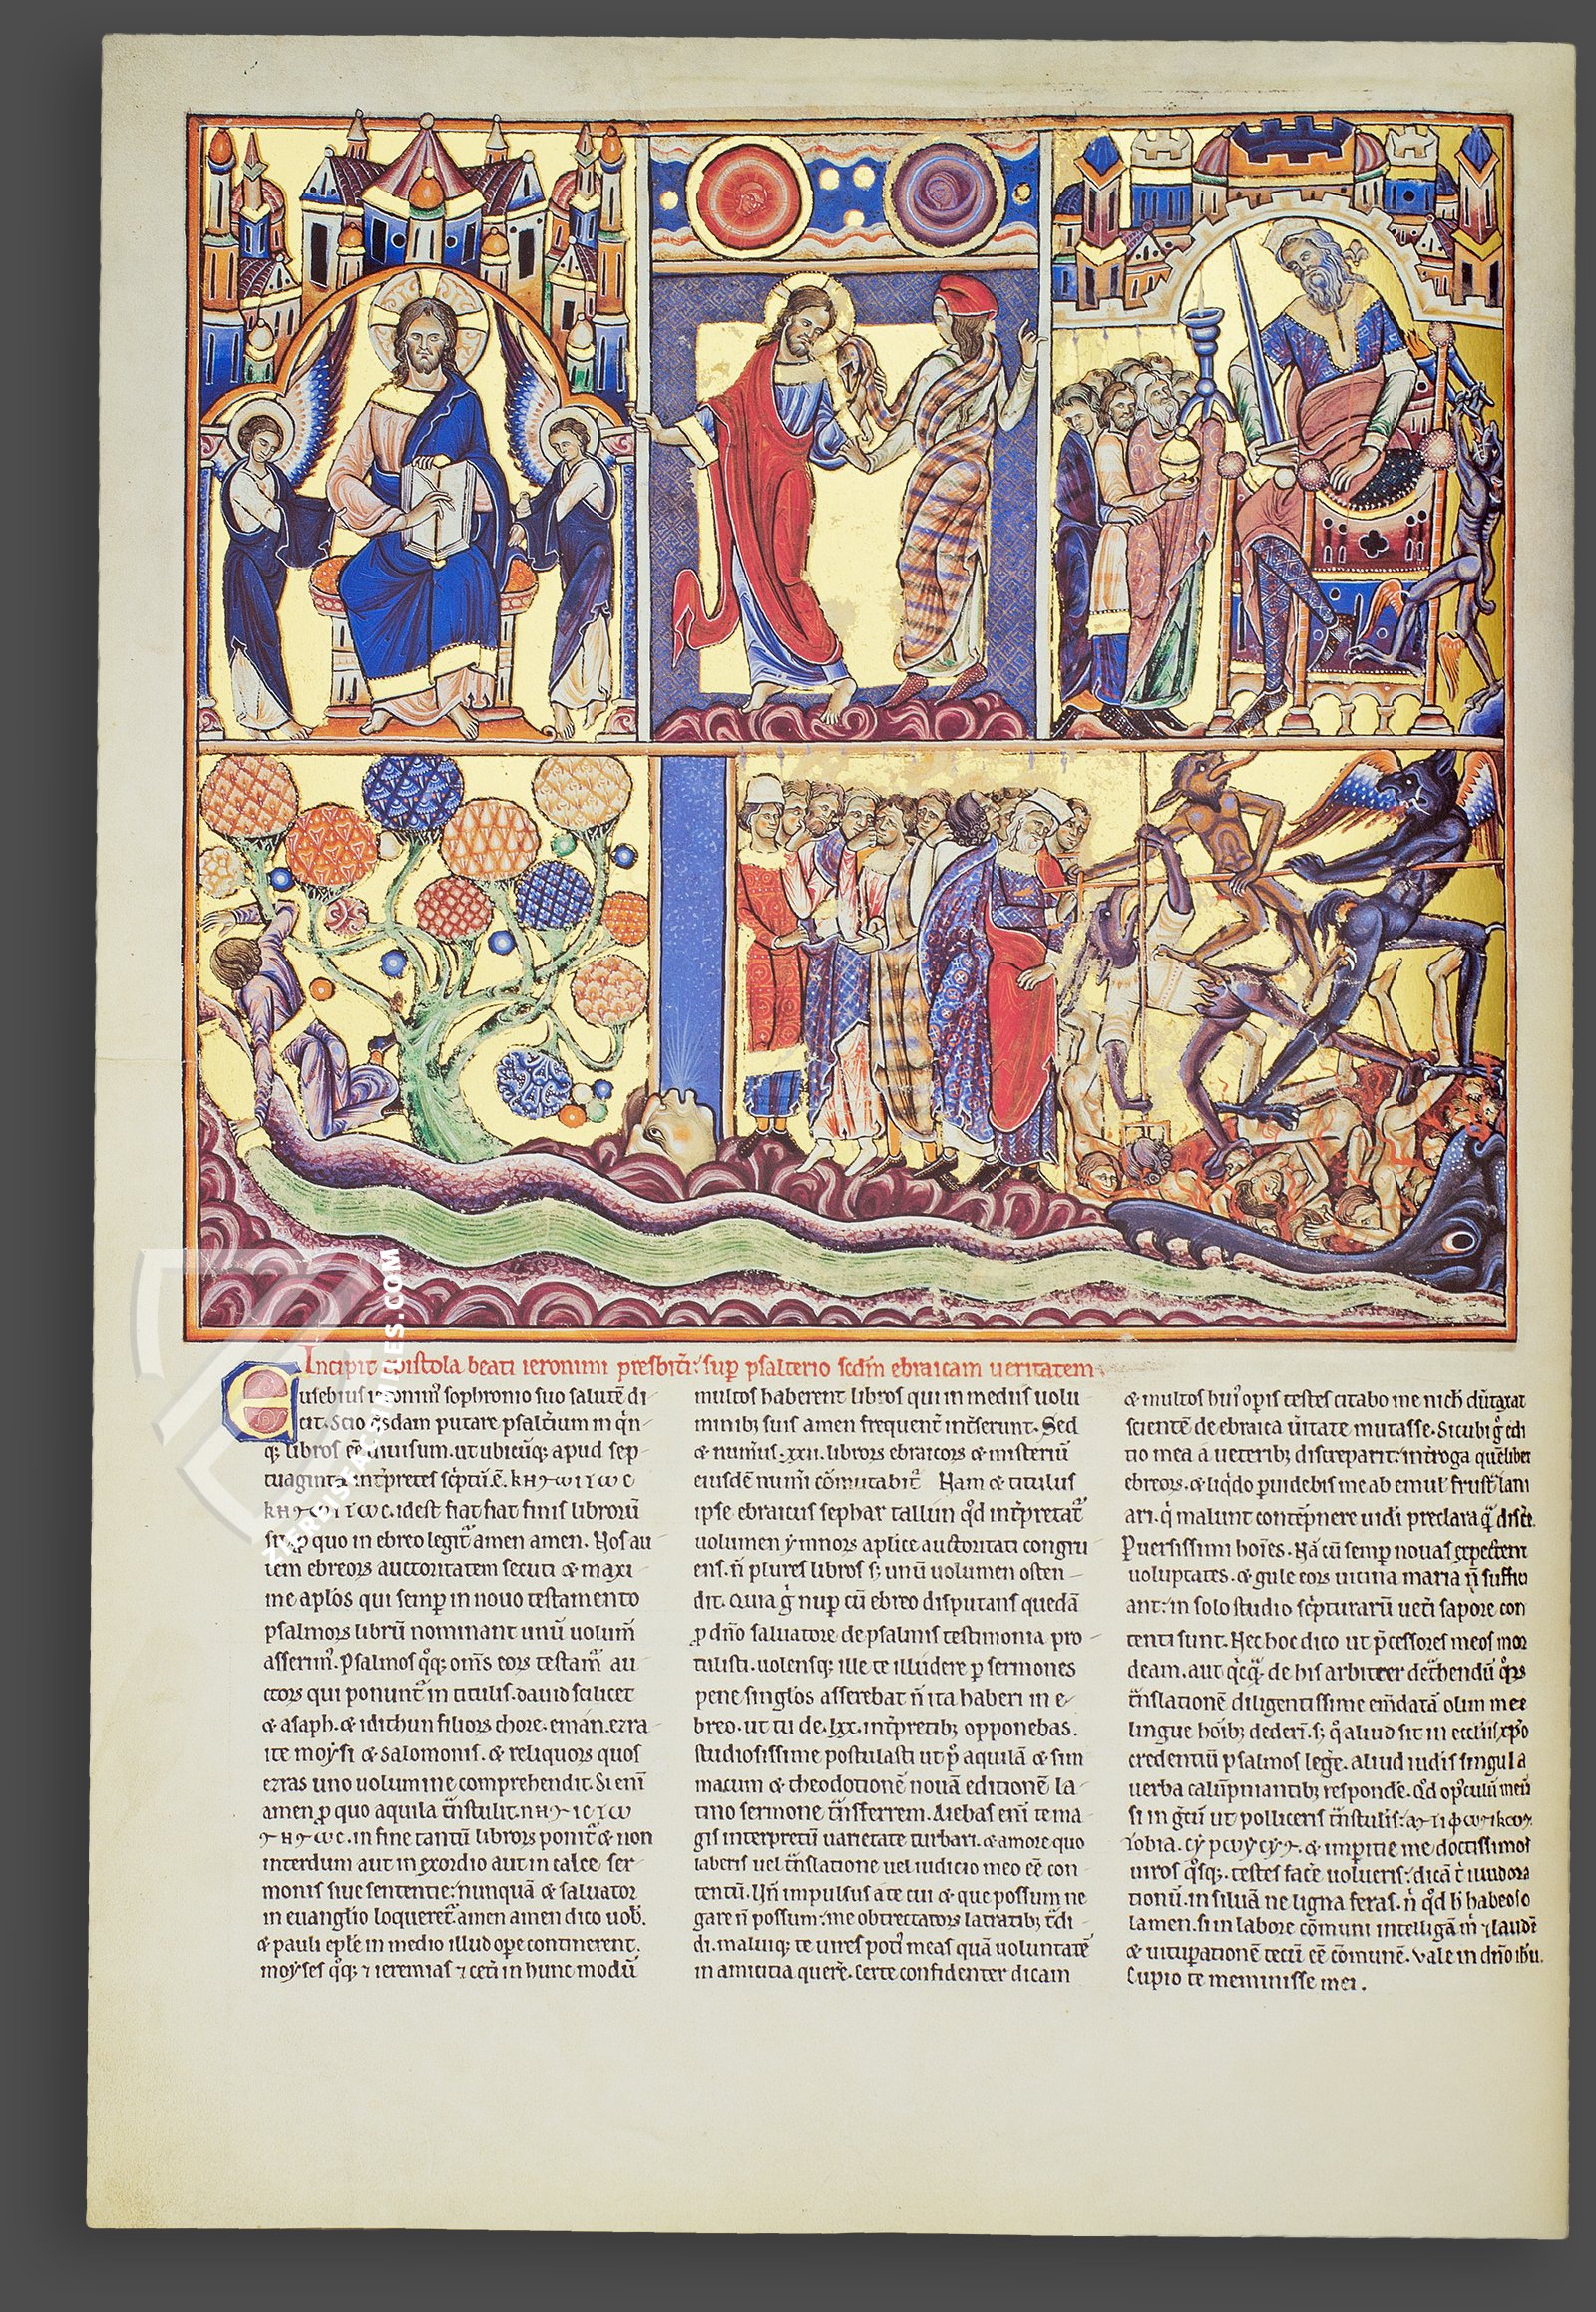 Incipit epistola beati ieronimi presbit̄i: sup̱ psalterio scd̄m ebraicam ueritatem
Eusebius ieronim᾽ sophronio suo salutē di
cit. Scio q̱sdam putare psalt̄ium in q̄n
q; libros eē diuisum. ut ubicūq; apud sep
tuaginta int̄pretes sc̄ptū. ē.
idest fiat fiat finis librorū
sit. p̱ quo in ebreo legit᾽ amen amen. Nos au
tem ebreoꝝ auctoritatem secuti & maxi
me aplōs qui semp̱ in nouo testamento
psalmoꝝ librū nominant unū uolum̄
asserim᾽. Psalmos q̊q; om̄s eoꝝ testam᾽ au
ctoꝝ qui ponunt᾽ in titulis. dauid scilicet
& asaph. & idithun filioꝝ chore. eman. ezra
ite moẏsi & salomonis. & reliquoꝝ quos
ezras uno uolumine comprehendit. Si enī
amen p̱ quo aquila t̄nstulit.
in fine tantū libroꝝ ponit᾽ & non
interdum aut in exordio aut in calce ser
monis siue sententie: nunquā & saluator
in euanglio loqueret᾽. amen amen dico uob̄.
& pauli eplē in medio illud ope continerent.
moẏses q̊q; ⁊ ieremias ⁊ cet̄i in hunc modū
multos haberent libros qui in mediis uolu
minib; suis amen frequent̄ int̄serunt. Sed
& num̄us .xxii. libroꝝ ebraicoꝝ & misteriū
eiusdē num̄i cōmutabit᾽ Nam & titulus
ipse ebraicus sephar tallim q̊d int̄pretat᾽
uolumen ẏmnoꝝ aplice auctoritati congru
ens. n̄ plures libros s; unū uolumen osten
dit. Quia g̊ nup̱ cū ebreo disputans quedā
p̱ dn̄o saluatore de psalmis testimonia pro
tulisti. uolensq; ille te illudere p̱ sermones
pene singlōs asserebat n̄ ita haberi in e
breo. ut tu de .lxx. int̄pretib; opponebas.
studiosissime postulasti ut p᾽ aquilā & sim
macum & theodotionē nouā editionē la
tino sermone t̄nsferrem. Aiebas enī te ma
gis interpretū uarietate turbari. & amore quo
laberis uel t̄nslatione uel iudicio meo eē con
tentū. Un̄ impulsus a te cui & que possum ne
gare n̄ possum: me obtrectatoꝝ latratib; t̄di
di. maluiq; te uires poti᾽ meas quā uoluntatē
in amicitia querē. Certe confidenter dicam
& multos hui᾽ opis testes citabo me nich̄ dūtaxat
scientē de ebraica uītate mutasse. Sicubi g̊ edi
tio mea a ueterib; discreparit: int̄roga quēlibet
ebreoꝝ. & liq̇do puidebis me ab emul᾽ frust̄ lani
ari. q̇ malunt contēpnere uidi preclara q̄ discē.
Puersissimi hoīes. Nā cū semp̱ nouas expectent
uoluptates. & gule eoꝝ uicina maria n̄ suffici
ant: in solo studio sc̄pturarū uet̄i sapore con
tenti sunt. Nec hoc dico ut p̄cessores meos mor
deam. aut q̇cq̄. de his arbitrer det̄hendū q̊ꝝ
t̄nslationē diligentissime em̄datā olim mee
lingue hoīb; dederī. s; q᾽ aliud sit in ecclīis xp̄o
credentiū psalmos legē. aliud iudis singula
uerba calūpniantib; respondē. Q̊d opusculū meū
si in gr̄cū ut polliceris t̄nstulis:
& imp̱itie me doctissimos
uiros q̊sq; testes facē uolueris: dicā t̄ illud ora
tionū. in siluā ne ligna feras. n̄ q̊d h̄ habeo so
lamen. si in labore cōmuni intelligā m̄ ⁊ laudē
& uitup̱ationē tecū eē cōmunē. Vale in dn̄o ihū.
Cupio te meminisse mei.
ZIEREIS FACSIMILES.COM